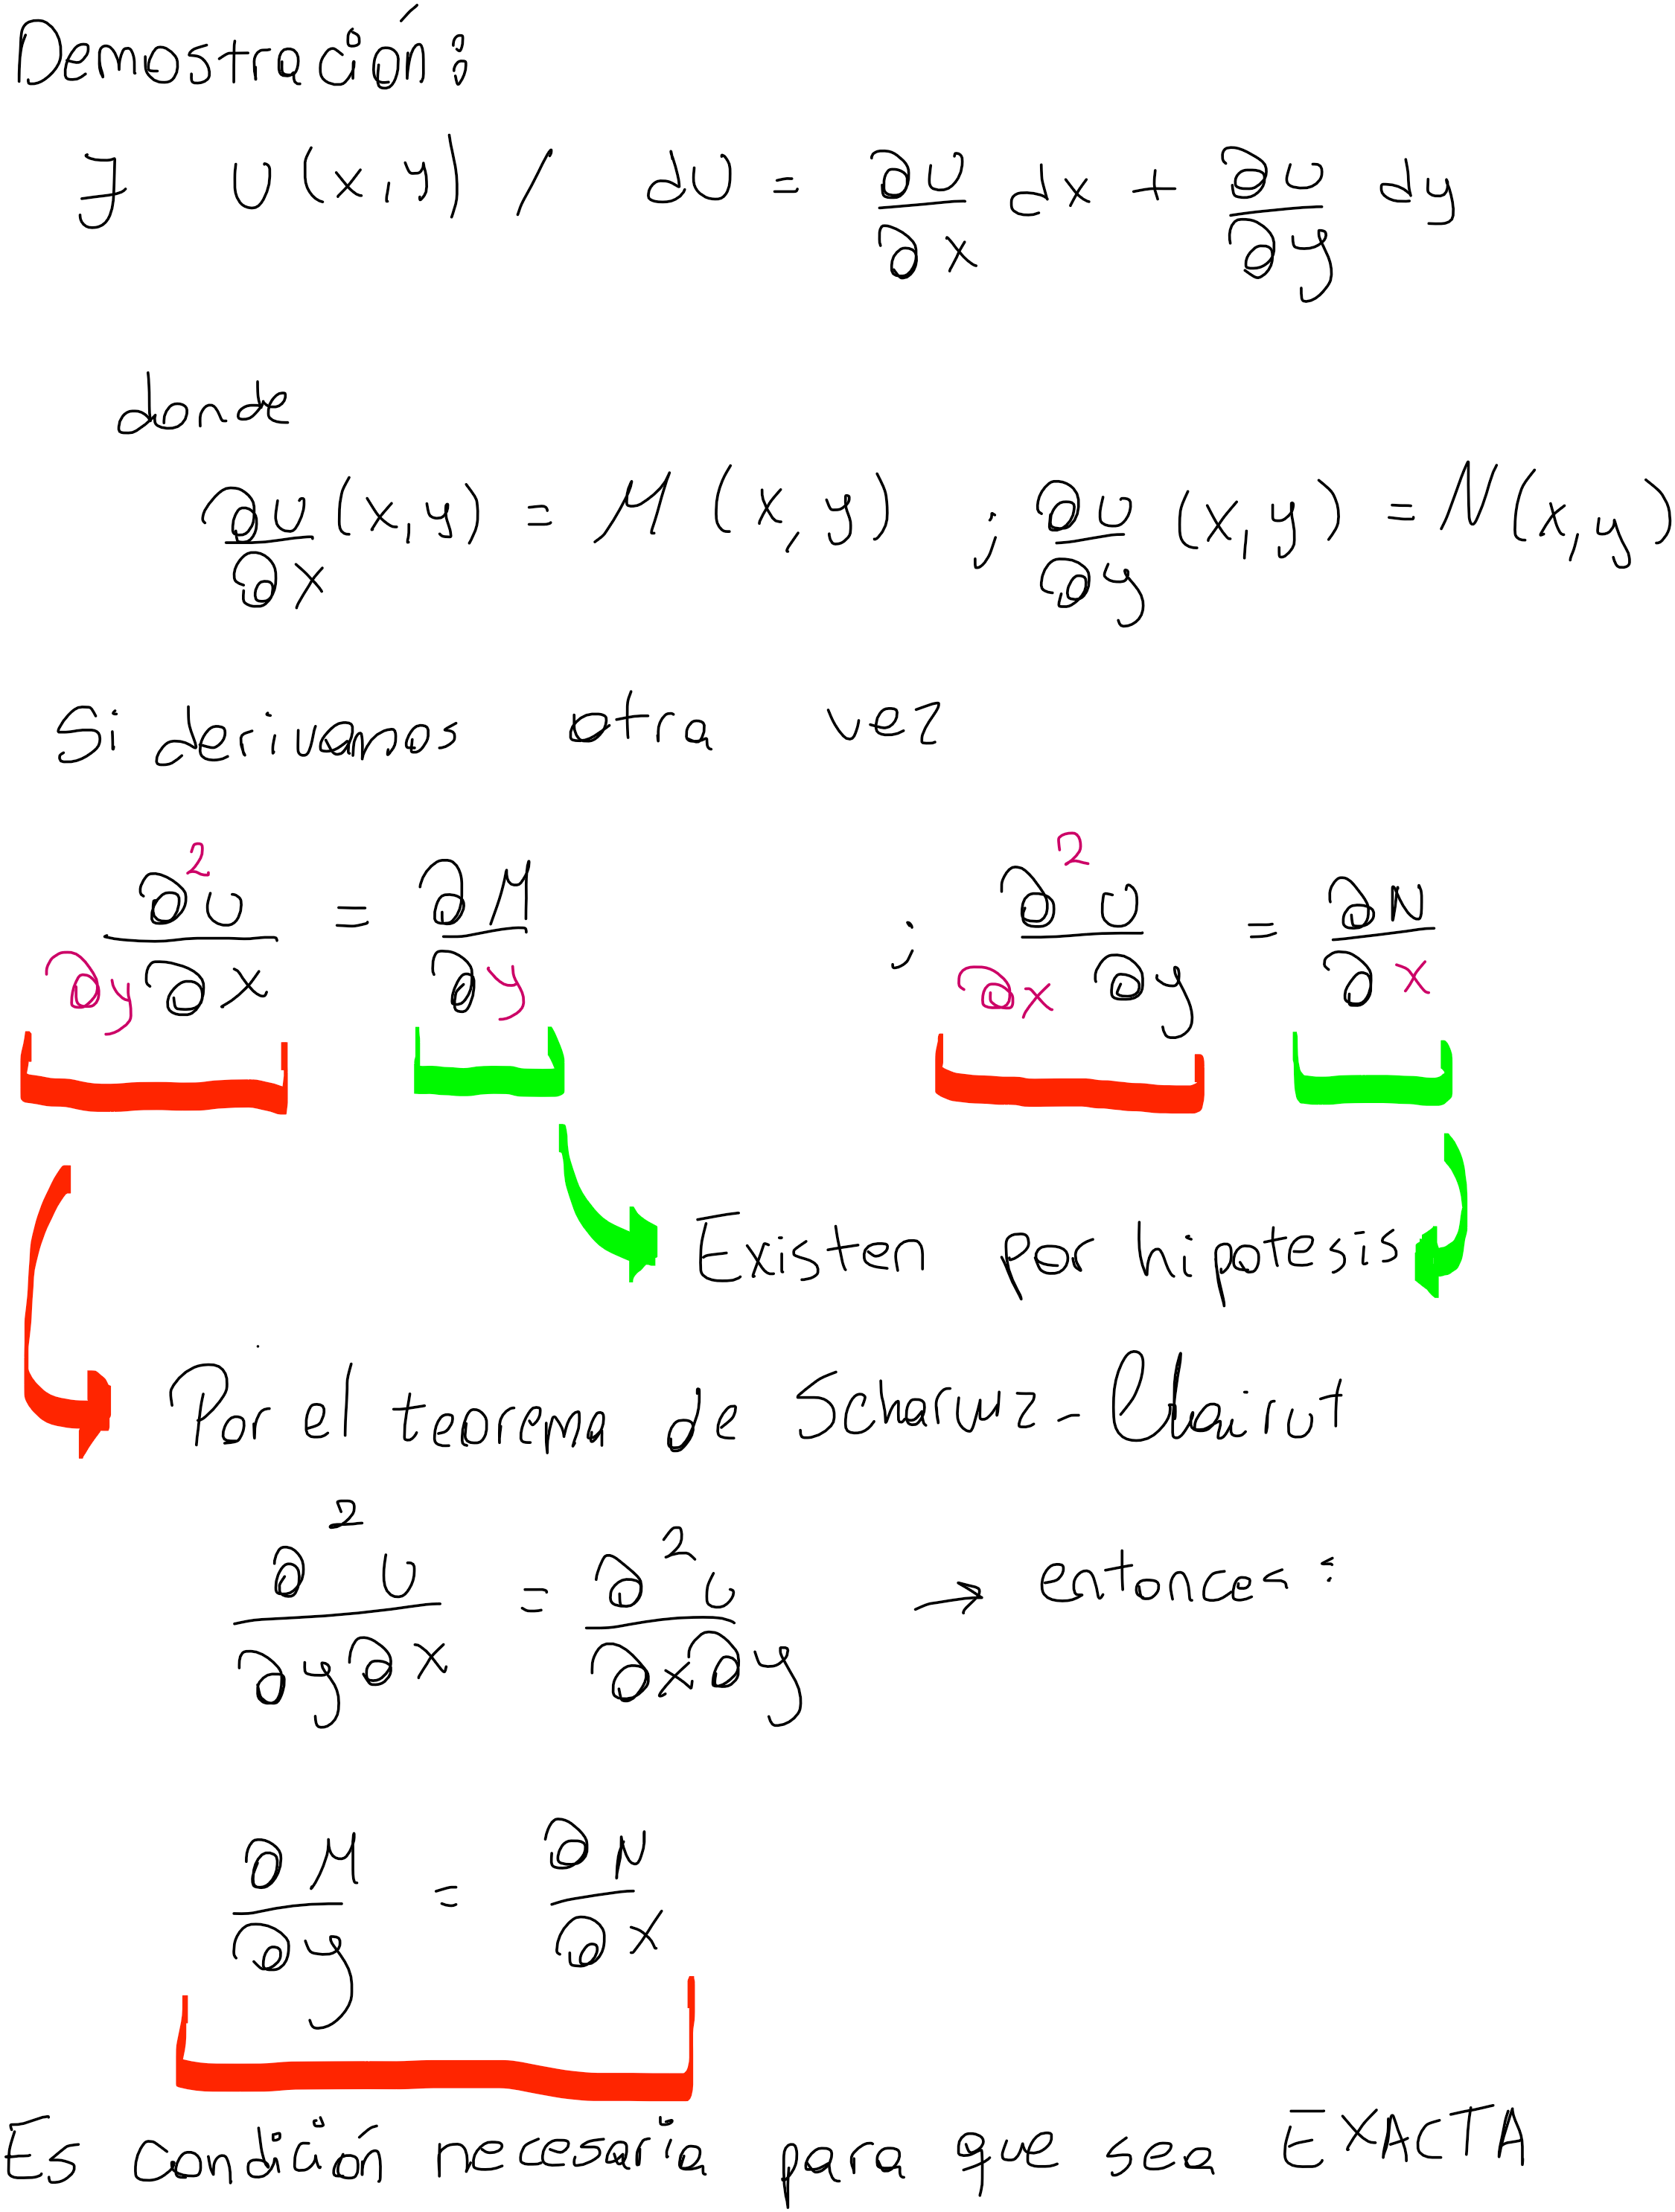 Demostración:
∃ U(x,y) / dU = ∂U/∂x dx + ∂U/∂y dy
donde
∂U/∂x (x,y) = M (x,y) ; ∂U/∂y (x,y) = N(x,y)
Si derivamos otra vez
∂²U/∂y∂x = ∂M/∂y ; ∂²U/∂x∂y = ∂N/∂x
Existen por hipotesis
Por el teorema de Scharwz-Clairut
∂²U/∂y∂x = ∂²U/∂x∂y → entonces:
∂M/∂y = ∂N/∂x
Es condición necesaria para que sea EXACTA